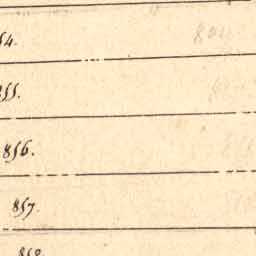 54.
855.
856.
857.
858.